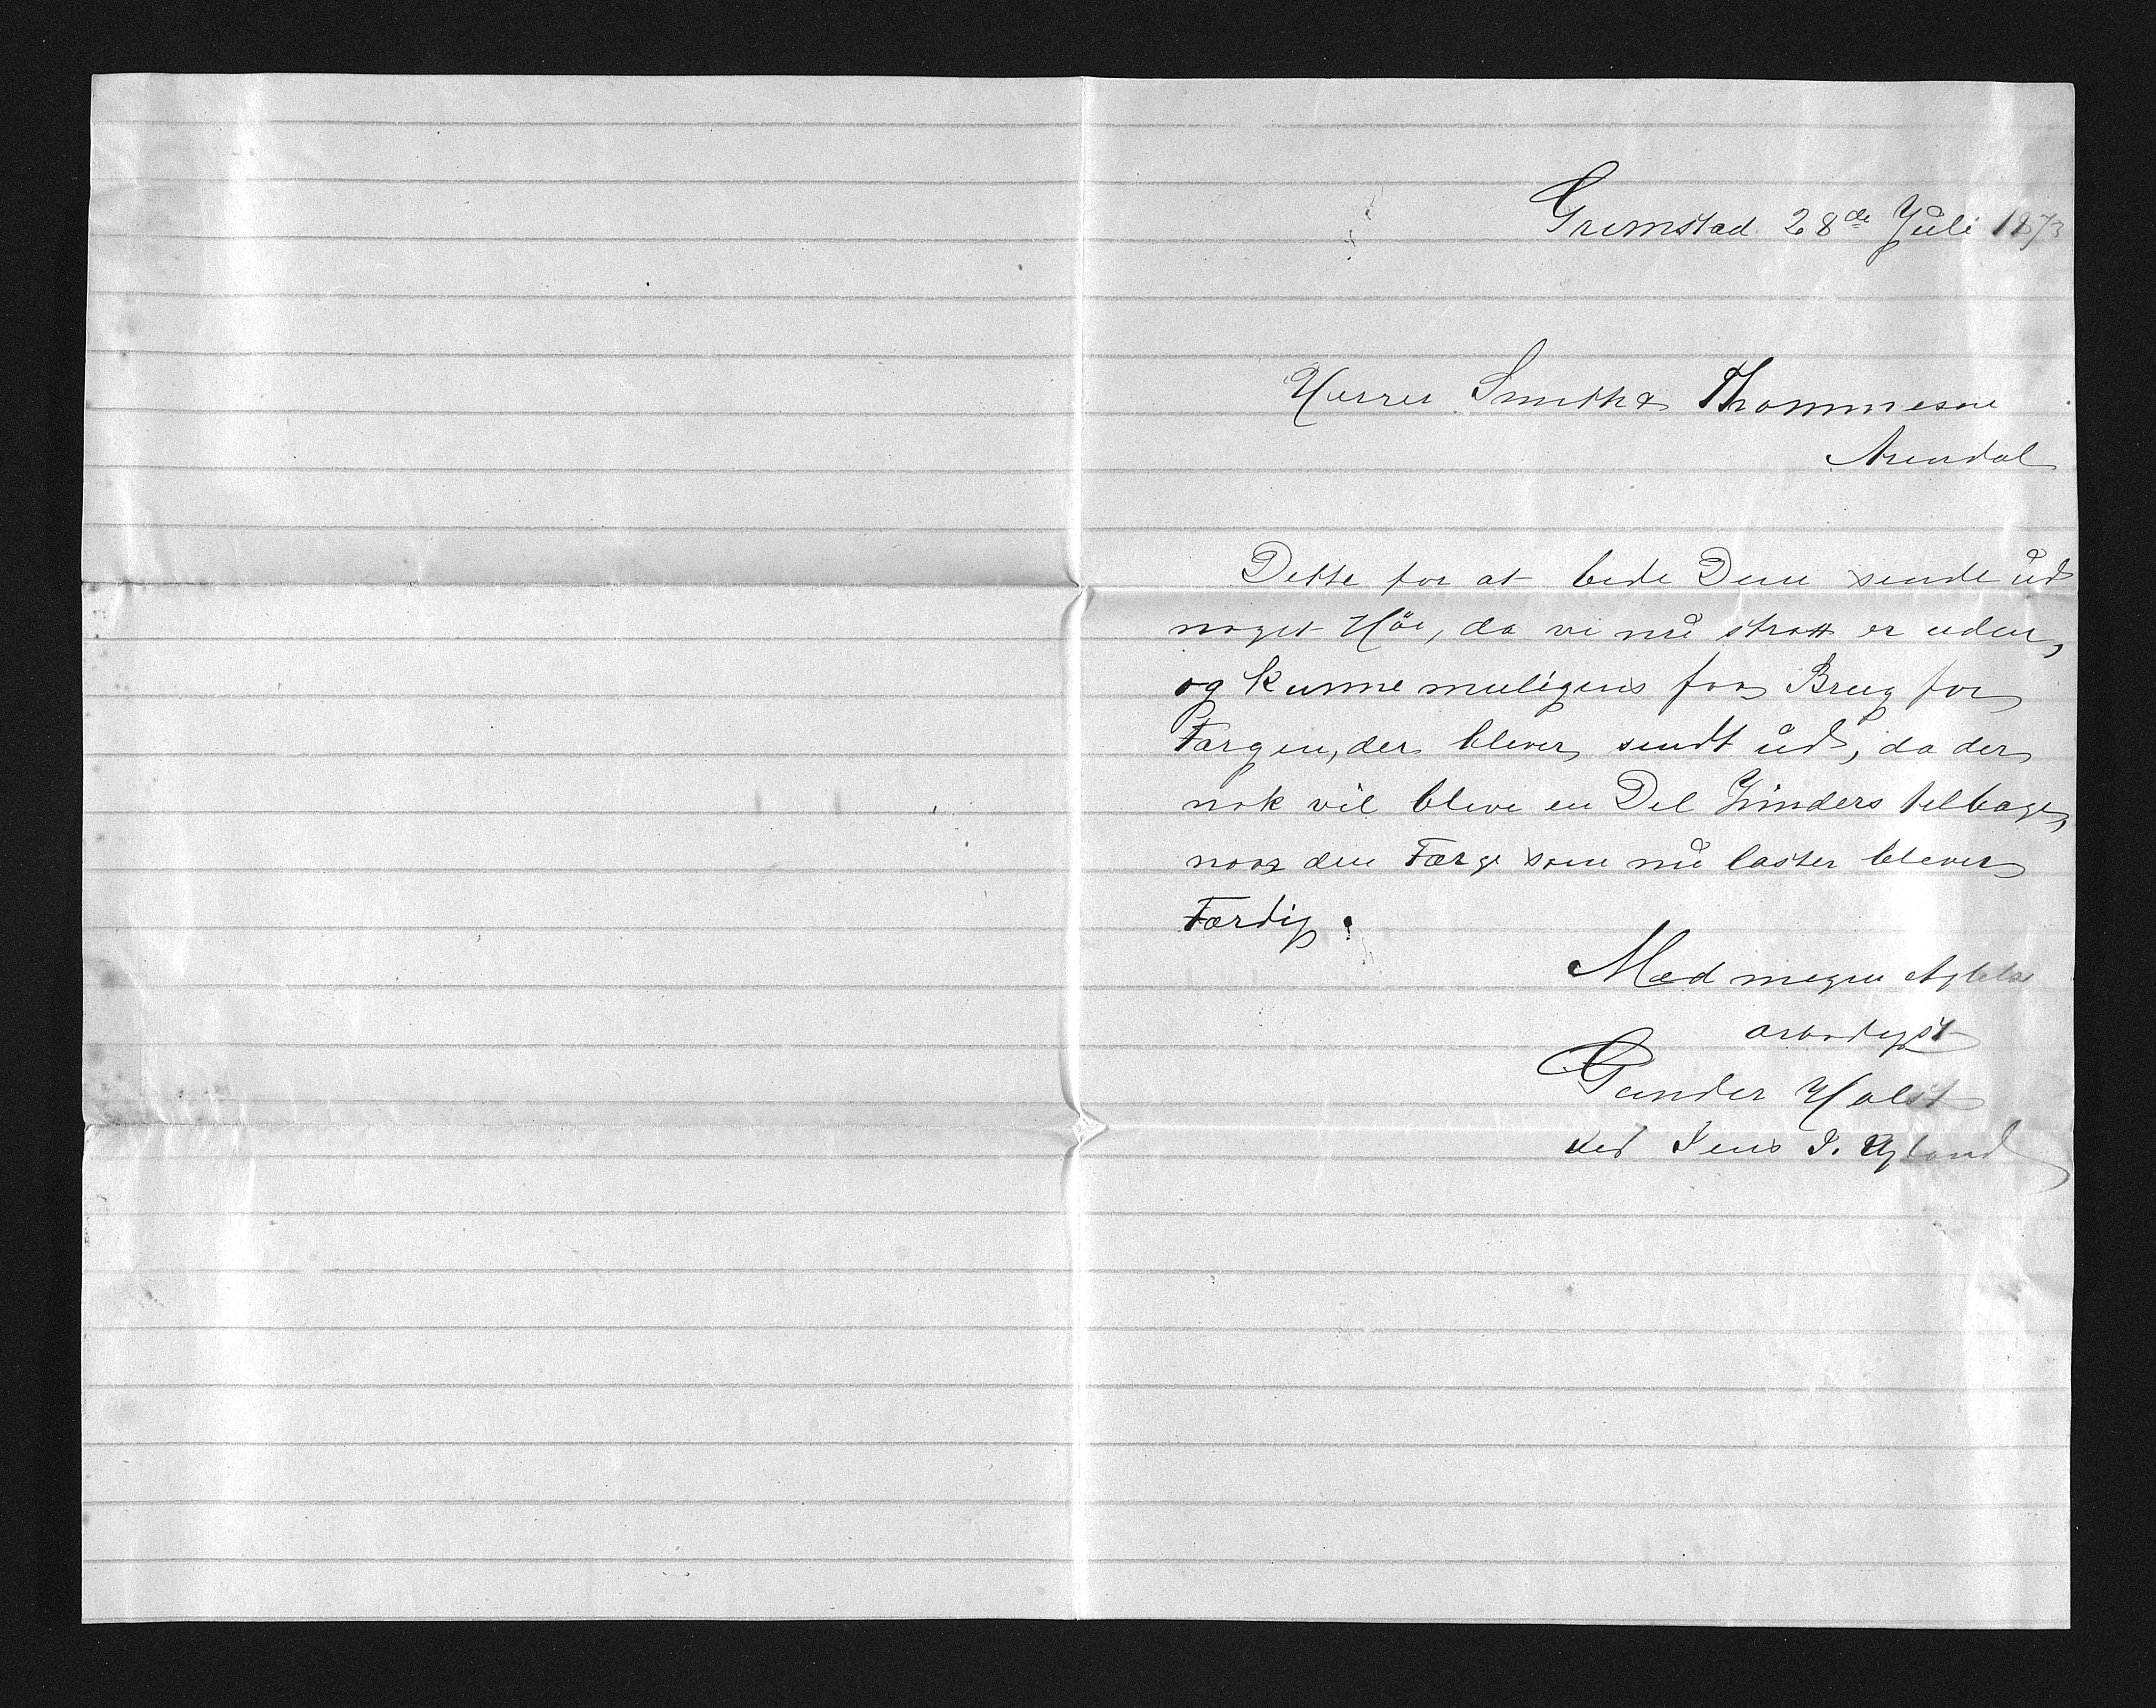 Grimstad 28de Juli 1873
Herrer Smith & Thommesen
Arendal
Dette for at bede Dem sende ud
noget Höe, da vi nu strax er uden,
og kunne muligens faa Brug for
Færgen, der bliver sendt ud, da der
nok vil blive en Del Hinders tilbage,
naar den Færge som nu laster bliver
Færdig.
Med megen Agtelse
ærbødigst
Gunder Holst
ved Jens J. Ugland